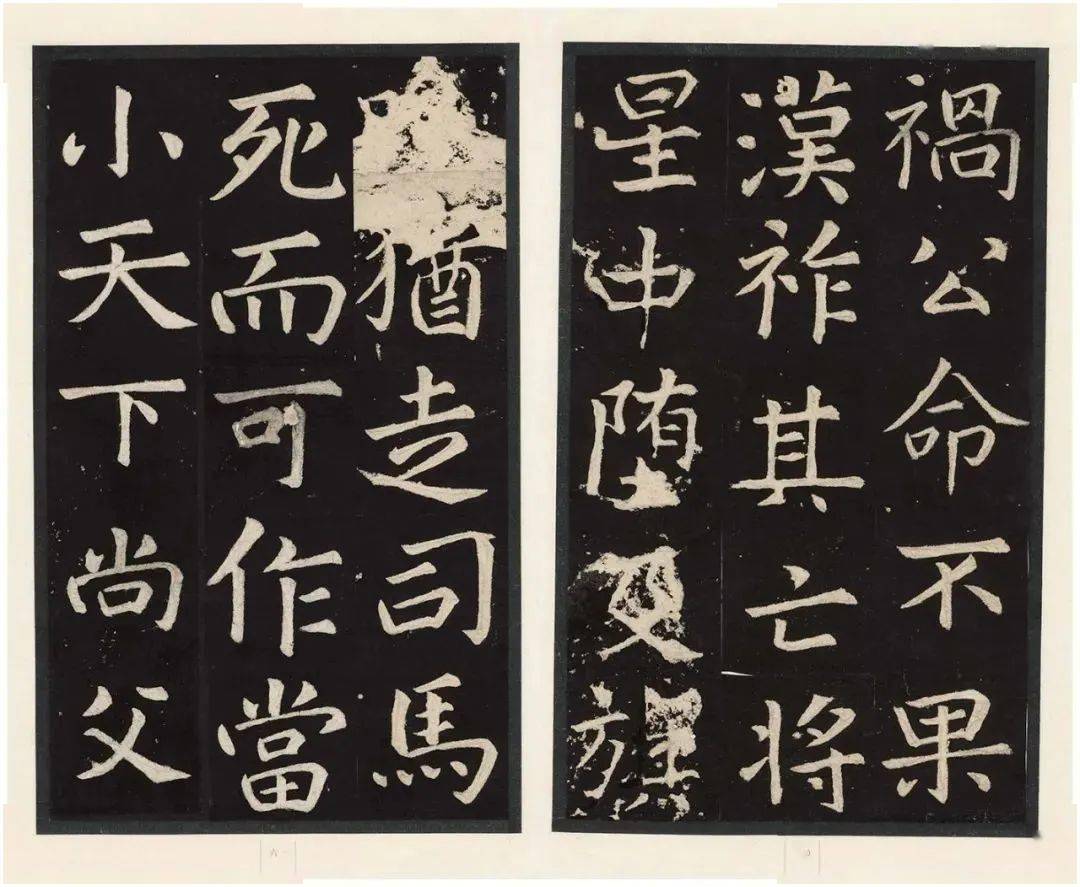 禍公命不果
漢祚其亡將
星中堕旗
猶走司馬
死而可作當
小天下尚父